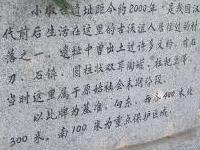 小墩遗址距今约2000年,是我国汉
代前后生活在这里的古汉谊人居住过的村
落之一。遗址中曾出土过许多文物,有石
刀、石锛、圆柱状双耳陶罐、柱纪等。
当时这里属于原始社会末期阶段。
以此牌为基准,向东、西各400米,北
300米,南100米为重点保护区域。